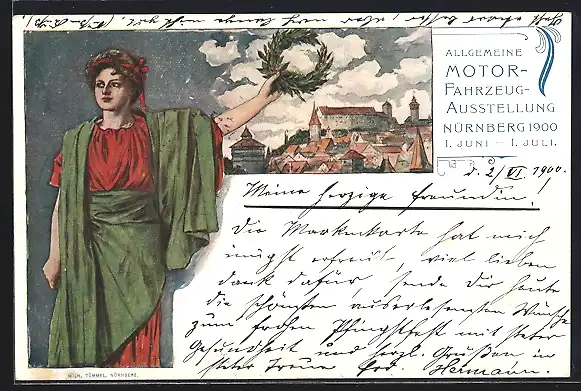 ALLGEMEINE
MOTOR-
FAHRZEUG-
AUSSTELLUNG
NÜRNBERG 1900
1. JUNI – 1. JULI.
d. 2/VI 1900.
Meine herzige Freundin!
Die Markenkarte hat mich
erfreut, viel lieben
dank dafür, sende Dir heute
die schönsten auserlesensten Wünsche
zum frohen Pfingstfest mit steter
Gesundheit und herzl. Grüßen in
steter Treue Hermann.
WILH. TÜMMEL, NÜRNBERG.